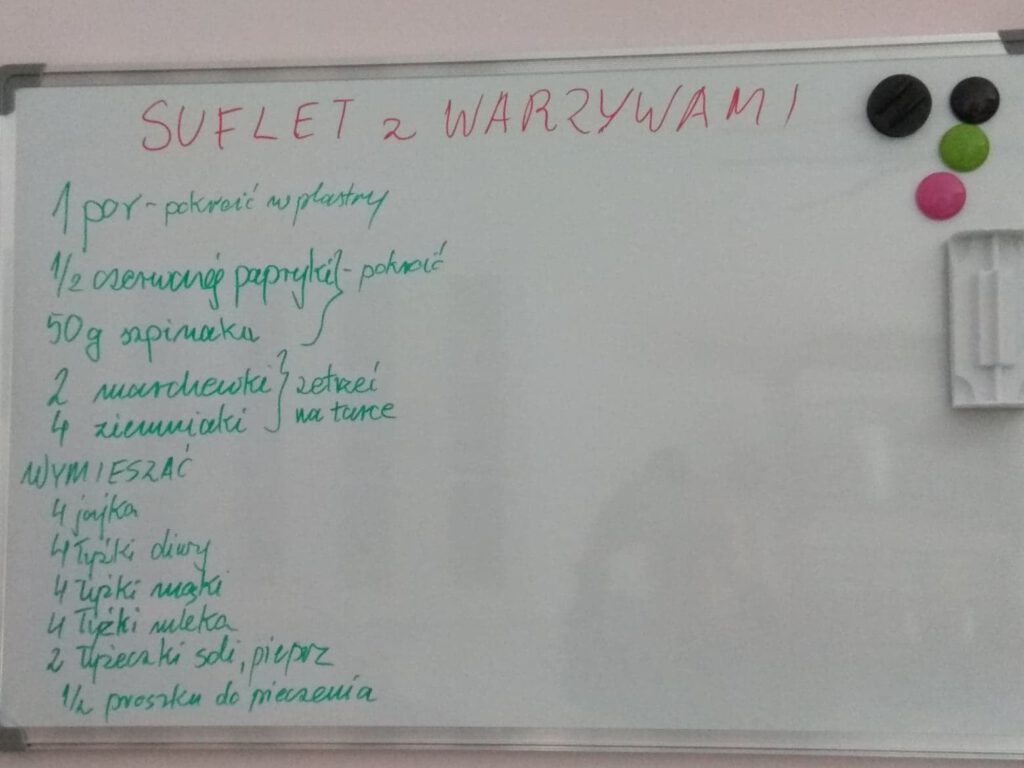 SUFLET z WARZYWAMI
1 por - pokroić w plastry
1/2 czerwonej papryki - pokroić
50g szpinaku
2 marchewki zetrzeć
4 ziemniaki na tarce
WYMIESZAĆ
4 jajka
4 łyżki oliwy
4 łyżki mąki
4 łyżki mleka
2 łyżeczki soli, pieprz
1/2 proszku do pieczenia